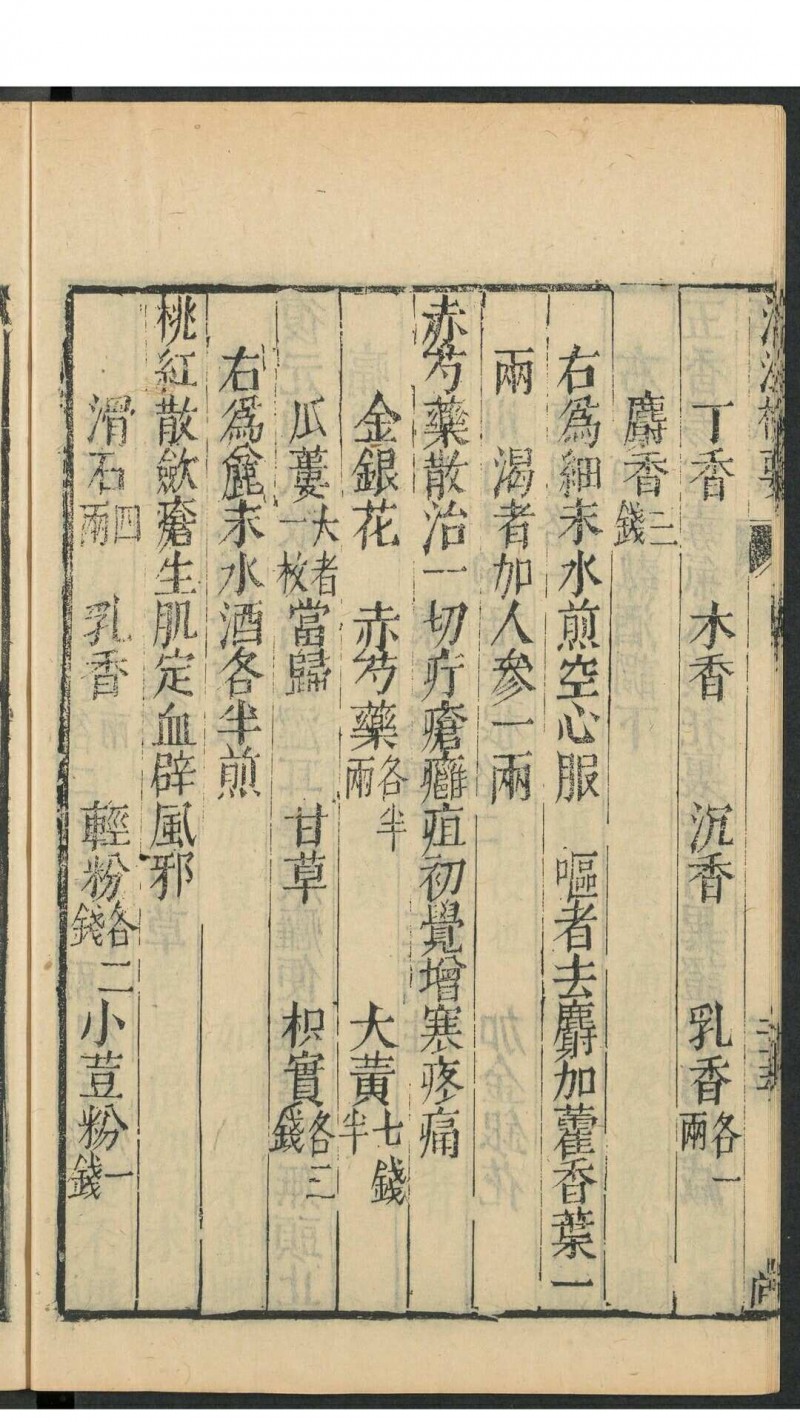 丁香 木香 沉香 乳香各一兩
麝香二錢
右爲細末水煎空心服 嘔者去麝加藿香葉一
兩 渴者加人參一兩
赤芍藥散治一切疔瘡癰疽初覺增寒疼痛
金銀花 赤芍藥各半兩 大黃七錢半
瓜蔞大者一枚 當歸 甘草 枳實各三錢
右爲麄末水酒各半煎
桃紅散歛瘡生肌定血辟風邪
滑石四兩 乳香 輕粉各二錢 小荳粉一錢